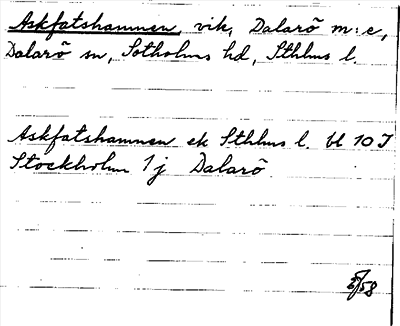 Askfatshamnen, vik, Dalarö m:e,
Dalarö sn, Sotholms hd, Sthlms l.
Askfatshamnen ek Sthlms l. bl 10 J
Stockholm 1j Dalarö
5/58